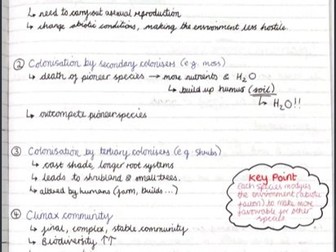 ↳ need to carry out asexual reproduction
↳ change abiotic conditions, making the environment less hostile
② Colonisation by secondary colonisers (e.g. moss)
↳ death of pioneer species → more nutrients & H₂O
↳ build up humus (soil)
↳ H₂O!!
↳ outcompete pioneer species
③ Colonisation by tertiary colonisers (e.g. shrubs)
↳ cast shade, longer root systems
↳ leads to shrubland & small trees.
↳ altered by humans (farm, builds...)
KEY Point
Each species modifies
the environment
to make more
favourable for other
species
④ Climax community
↳ final, complex, stable community
↳ Biodiversity ↑↑